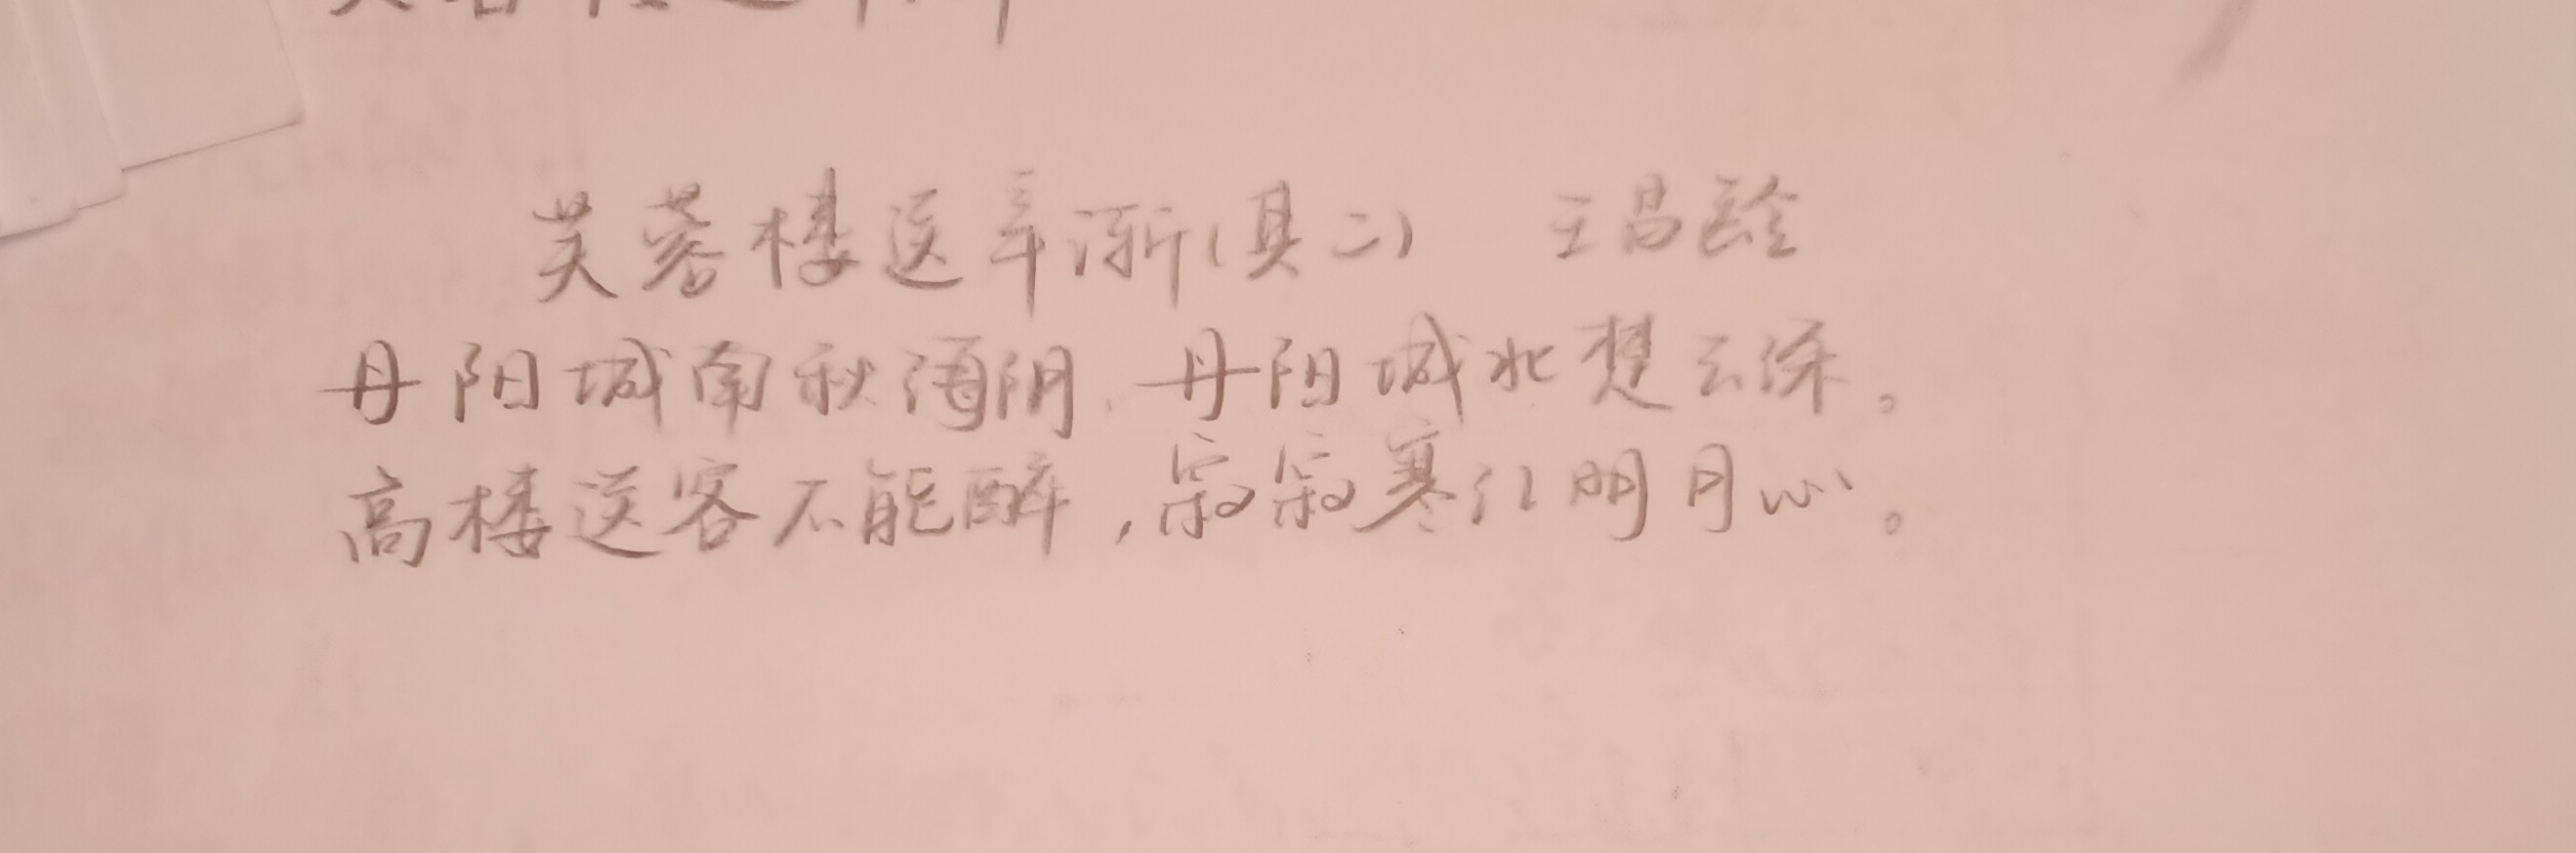 芙蓉楼送辛渐(其二) 王昌龄
丹阳城南秋海阴,丹阳城北楚云深。
高楼送客不能醉,寂寂寒江明月心。